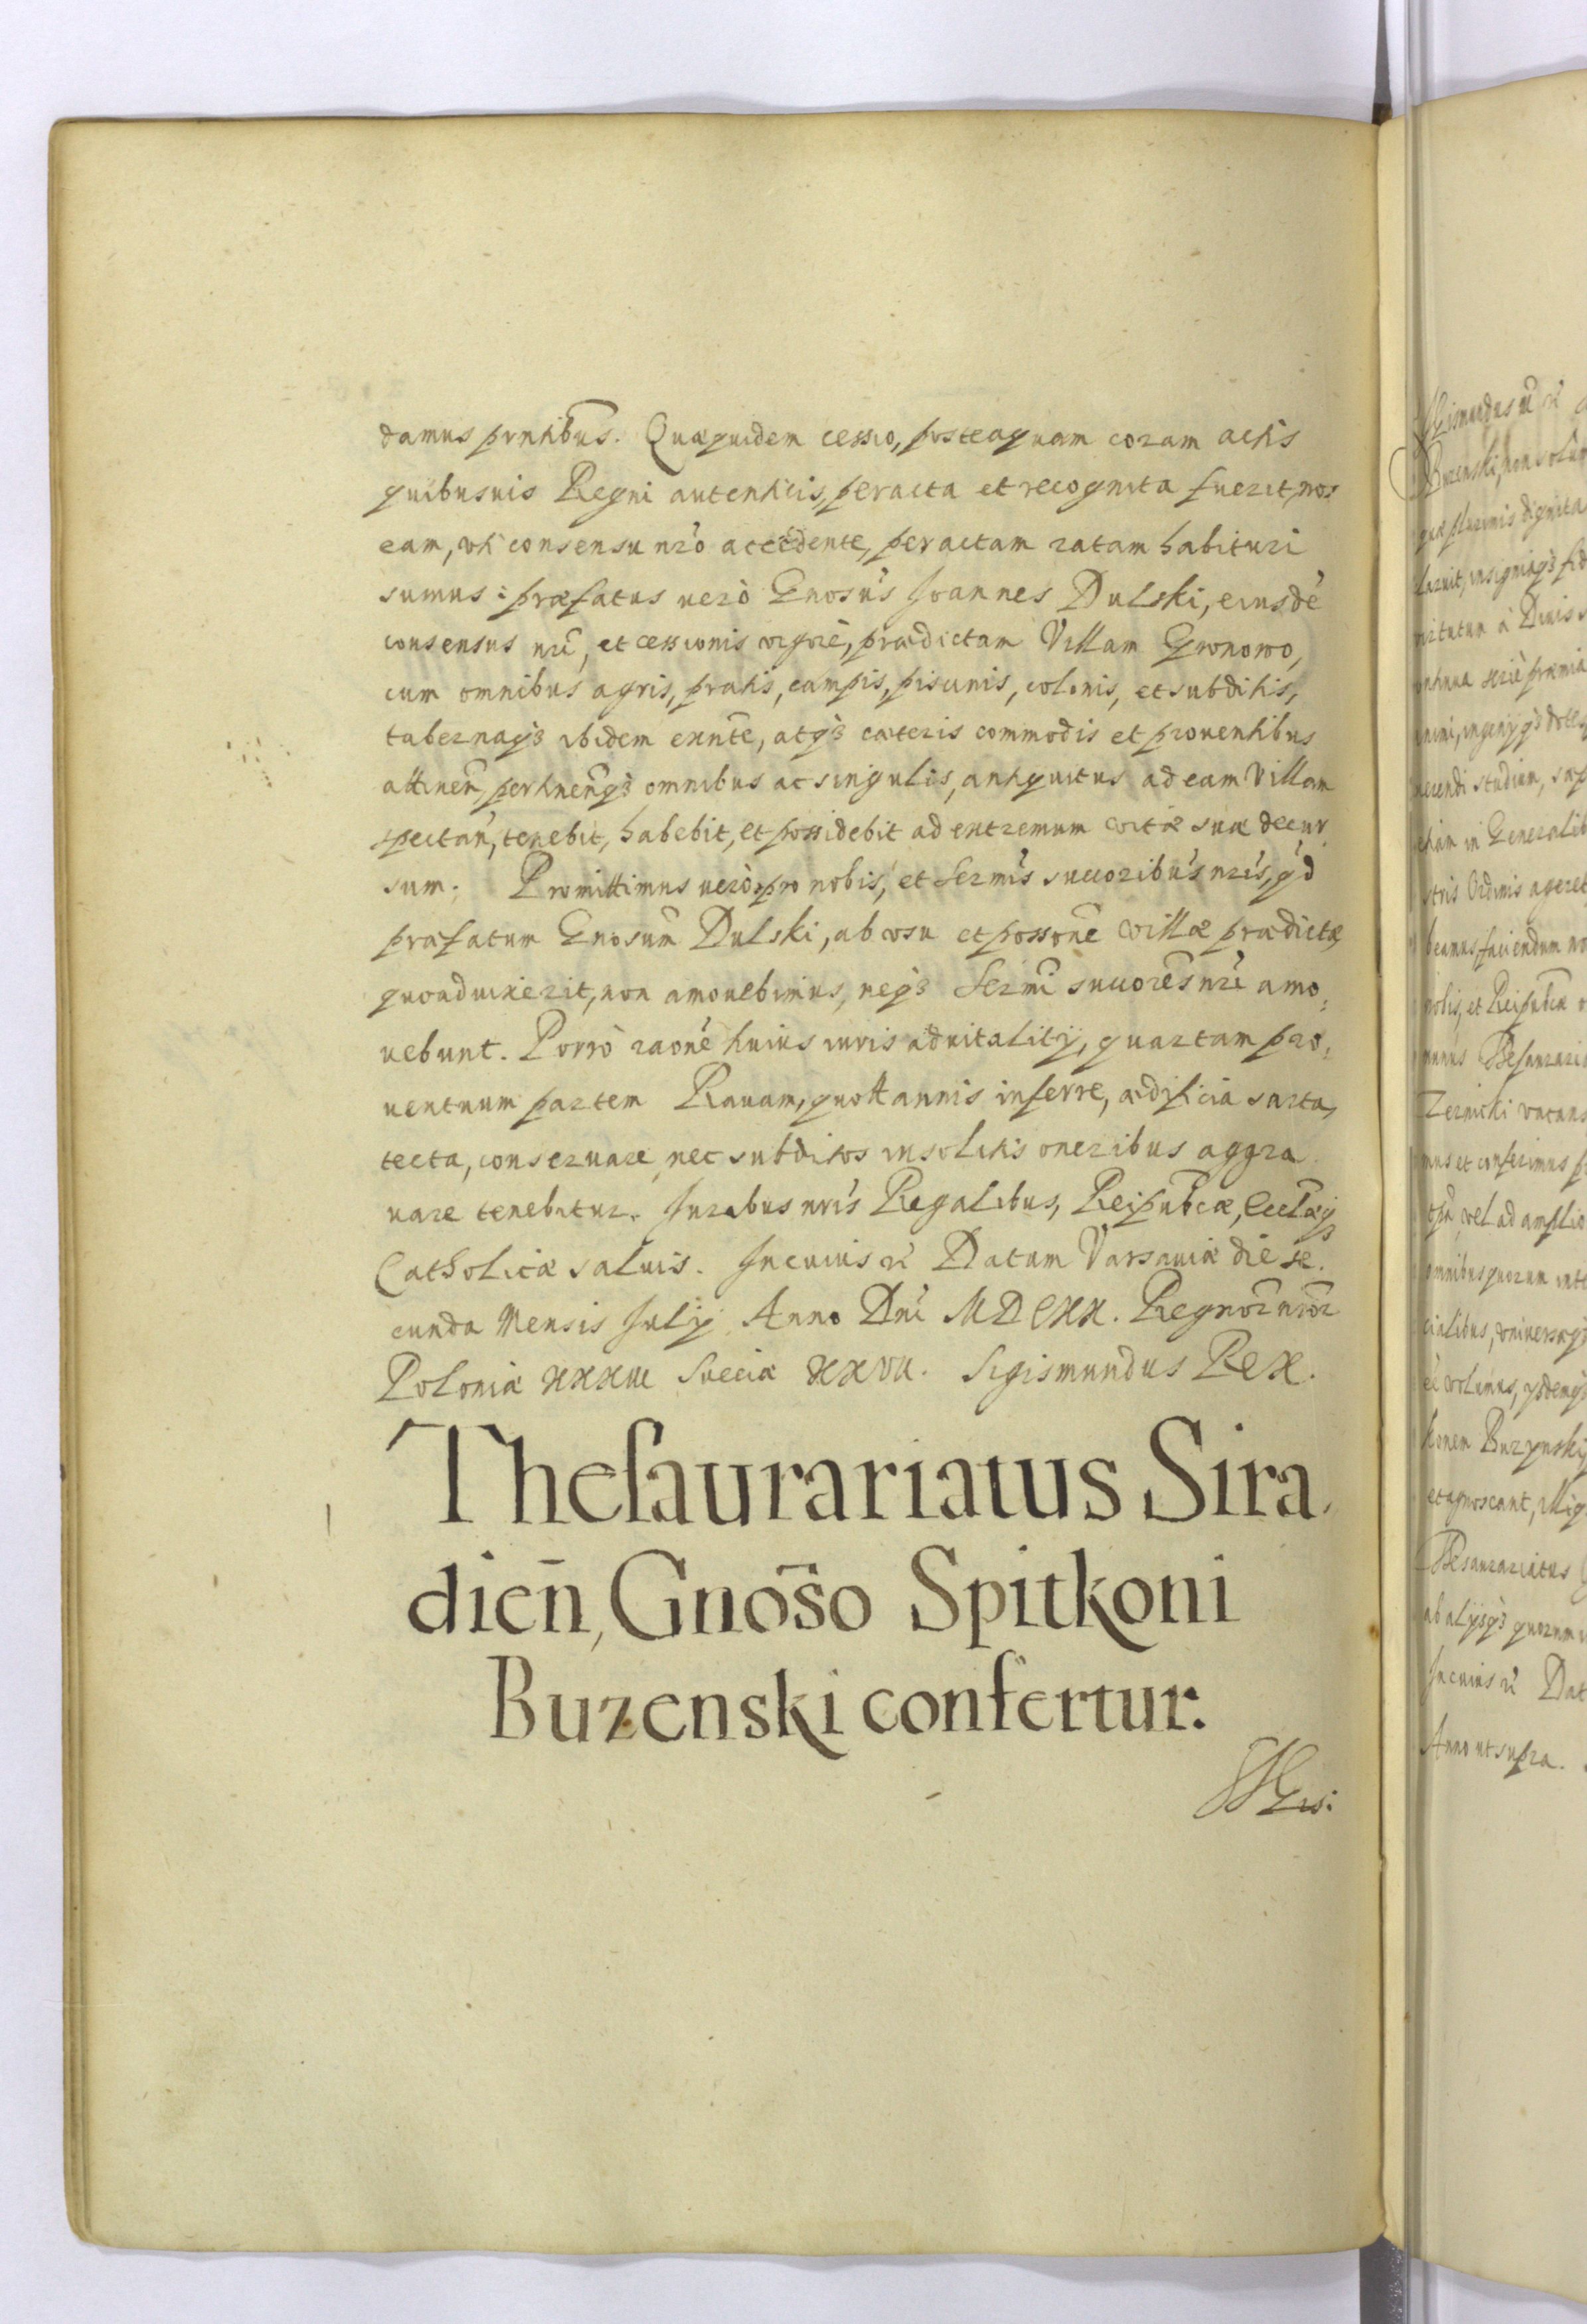 damus prntibus. Quaequidem cessio, posteaquam coram actis
quibusuis Regni autenticis, peracta et recognita fuerit, nos
eam, uti consensu nro accedente, peractam ratam habituri
sumus: praefatus uerò Gnosus Joannes Dulski, eiusdē
consensus nri, et cessionis vigore, praedictam Villam Gronowo,
cum omnibus agris, pratis, campis, piscinis, colonis, et subditis,
tabernaq3 ibidem exnte, atq3 caeteris commodis et prouentibus
attinen, pertinenq3 omnibus ac singulis, antiquitus ad eam Villam
spectan, tenebit, habebit, et possidebit ad extremum vitae suae decur
sum. Promittimus uerò pro nobis, et Sermis succoribus nris, qd
praefatum Gnosum Dulski, ab vsu et possone villae praedictae
quoaduixerit, non amouebimus, neq3 Sermi succores nri amo,
uebunt. Porrò raone huius iuris aduitalitij, quartam pro,
uentuum partem Rauam, quottannis inferre, aedificia sarta,
tecta, conseruare, nec subditos insolitis oneribus aggra
uare tenebitur. Juribus nris Regalibus, Reipubcae, Ecclaeq3
Catholicae saluis. In cuius rei Datum Varsauiae die se.
cunda Mensis Julij Anno Dni MDCXX. Regnor nror
Poloniae XXXIII Sueciae XXVII. Sigismundus Rex.
Thesaurariatus Sira,
dien, Gnoso Spitkoni
Buzenski confertur.
Sigis:
Sigismundus
Buzenski, non solum
quae plurimis dignita
virtutum à Diuis
etiam in Generalib
stris Ordinis ageret
beamus faciendum no
nobis, et Reipubcae
munus Thesaurario
mus et conferimus
vel ad amplio
omnibus quorum inte
cialibus, vniuersisq3
volumus,
Buzynski
et agnoscant, illiq
Thesaurariatus
ab alijsq3 quorum
In cuius rei Dat
Anno ut supra.